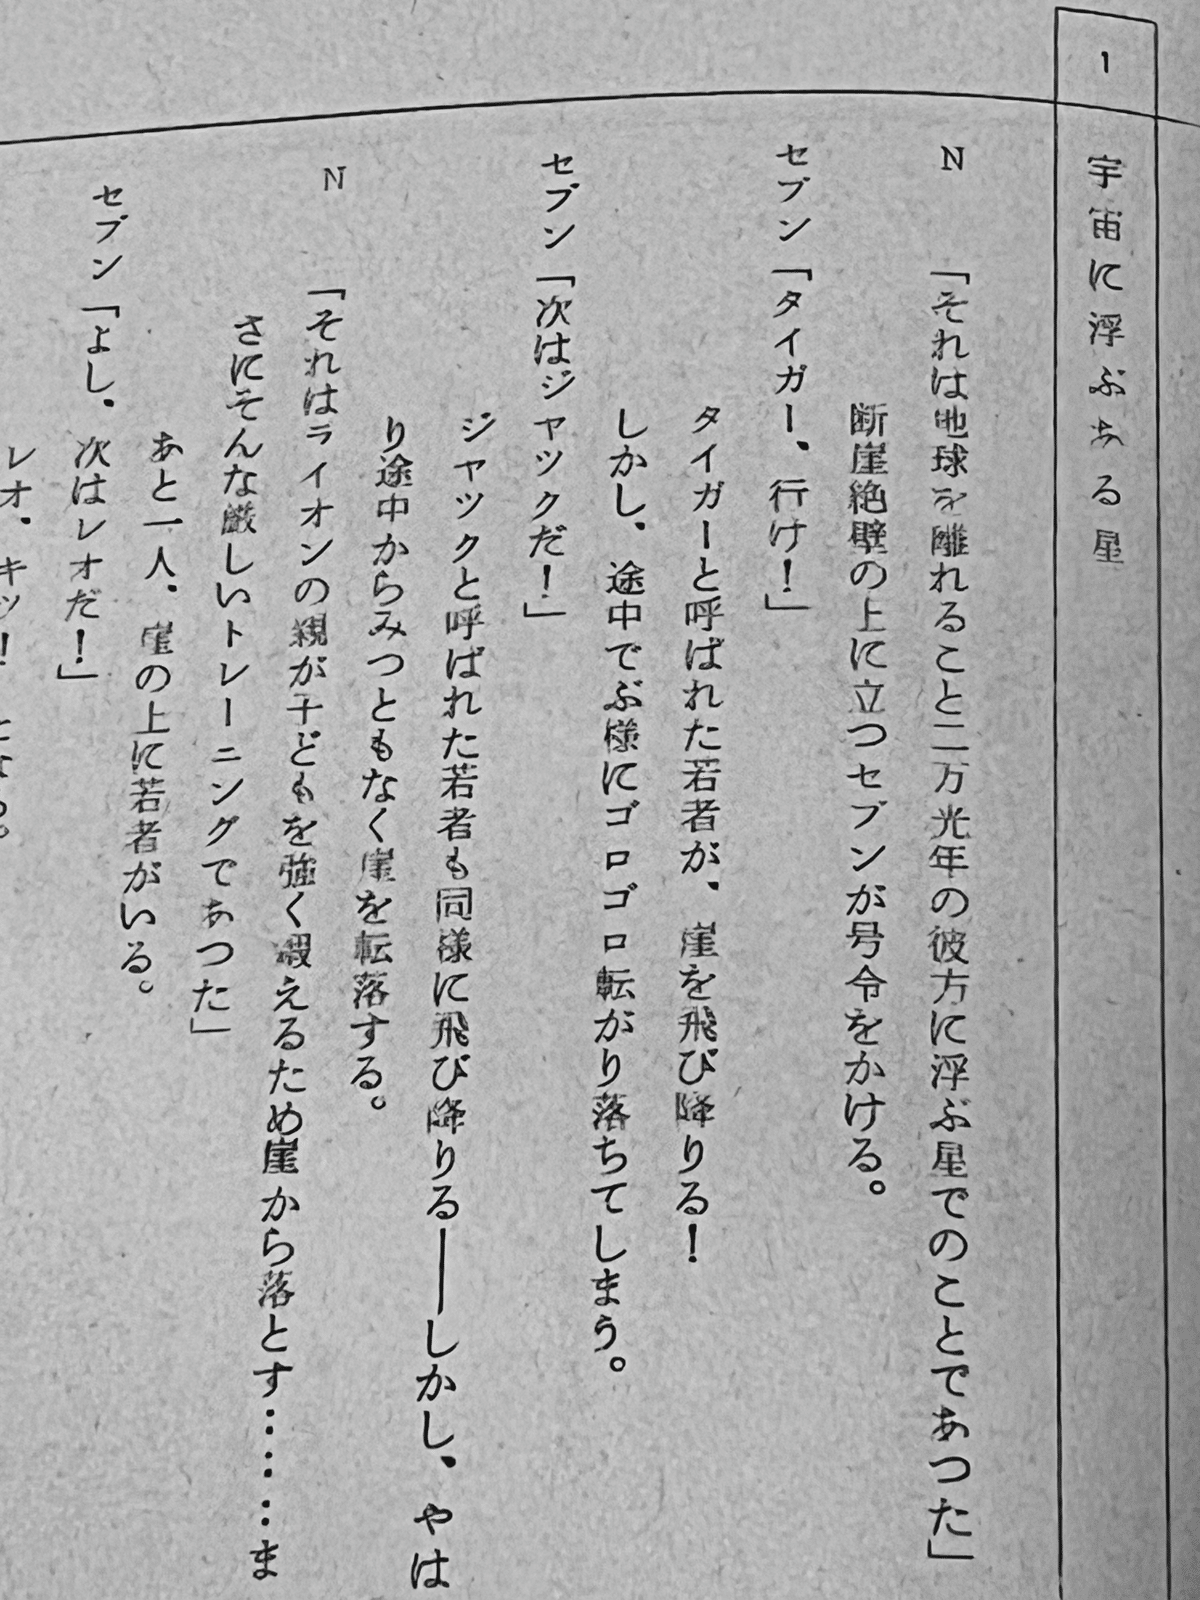 1 宇宙に浮ぶある星
N 「それは地球を離れること二万光年の彼方に浮ぶ星でのことであつた」
断崖絶壁の上に立つセブンが号令をかける。
セブン「タイガー、行け！」
タイガーと呼ばれた若者が、崖を飛び降りる！
しかし、途中でぶ様にゴロゴロ転がり落ちてしまう。
セブン「次はジヤツクだ！」
ジヤツクと呼ばれた若者も同様に飛び降りる――しかし、やは
り途中からみつともなく崖を転落する。
N 「それはライオンの親が子どもを強く鍛えるため崖から落とす……ま
さにそんな厳しいトレーニングであつた」
あと一人、崖の上に若者がいる。
セブン「よし、次はレオだ！」
レオ、キッ！となる。